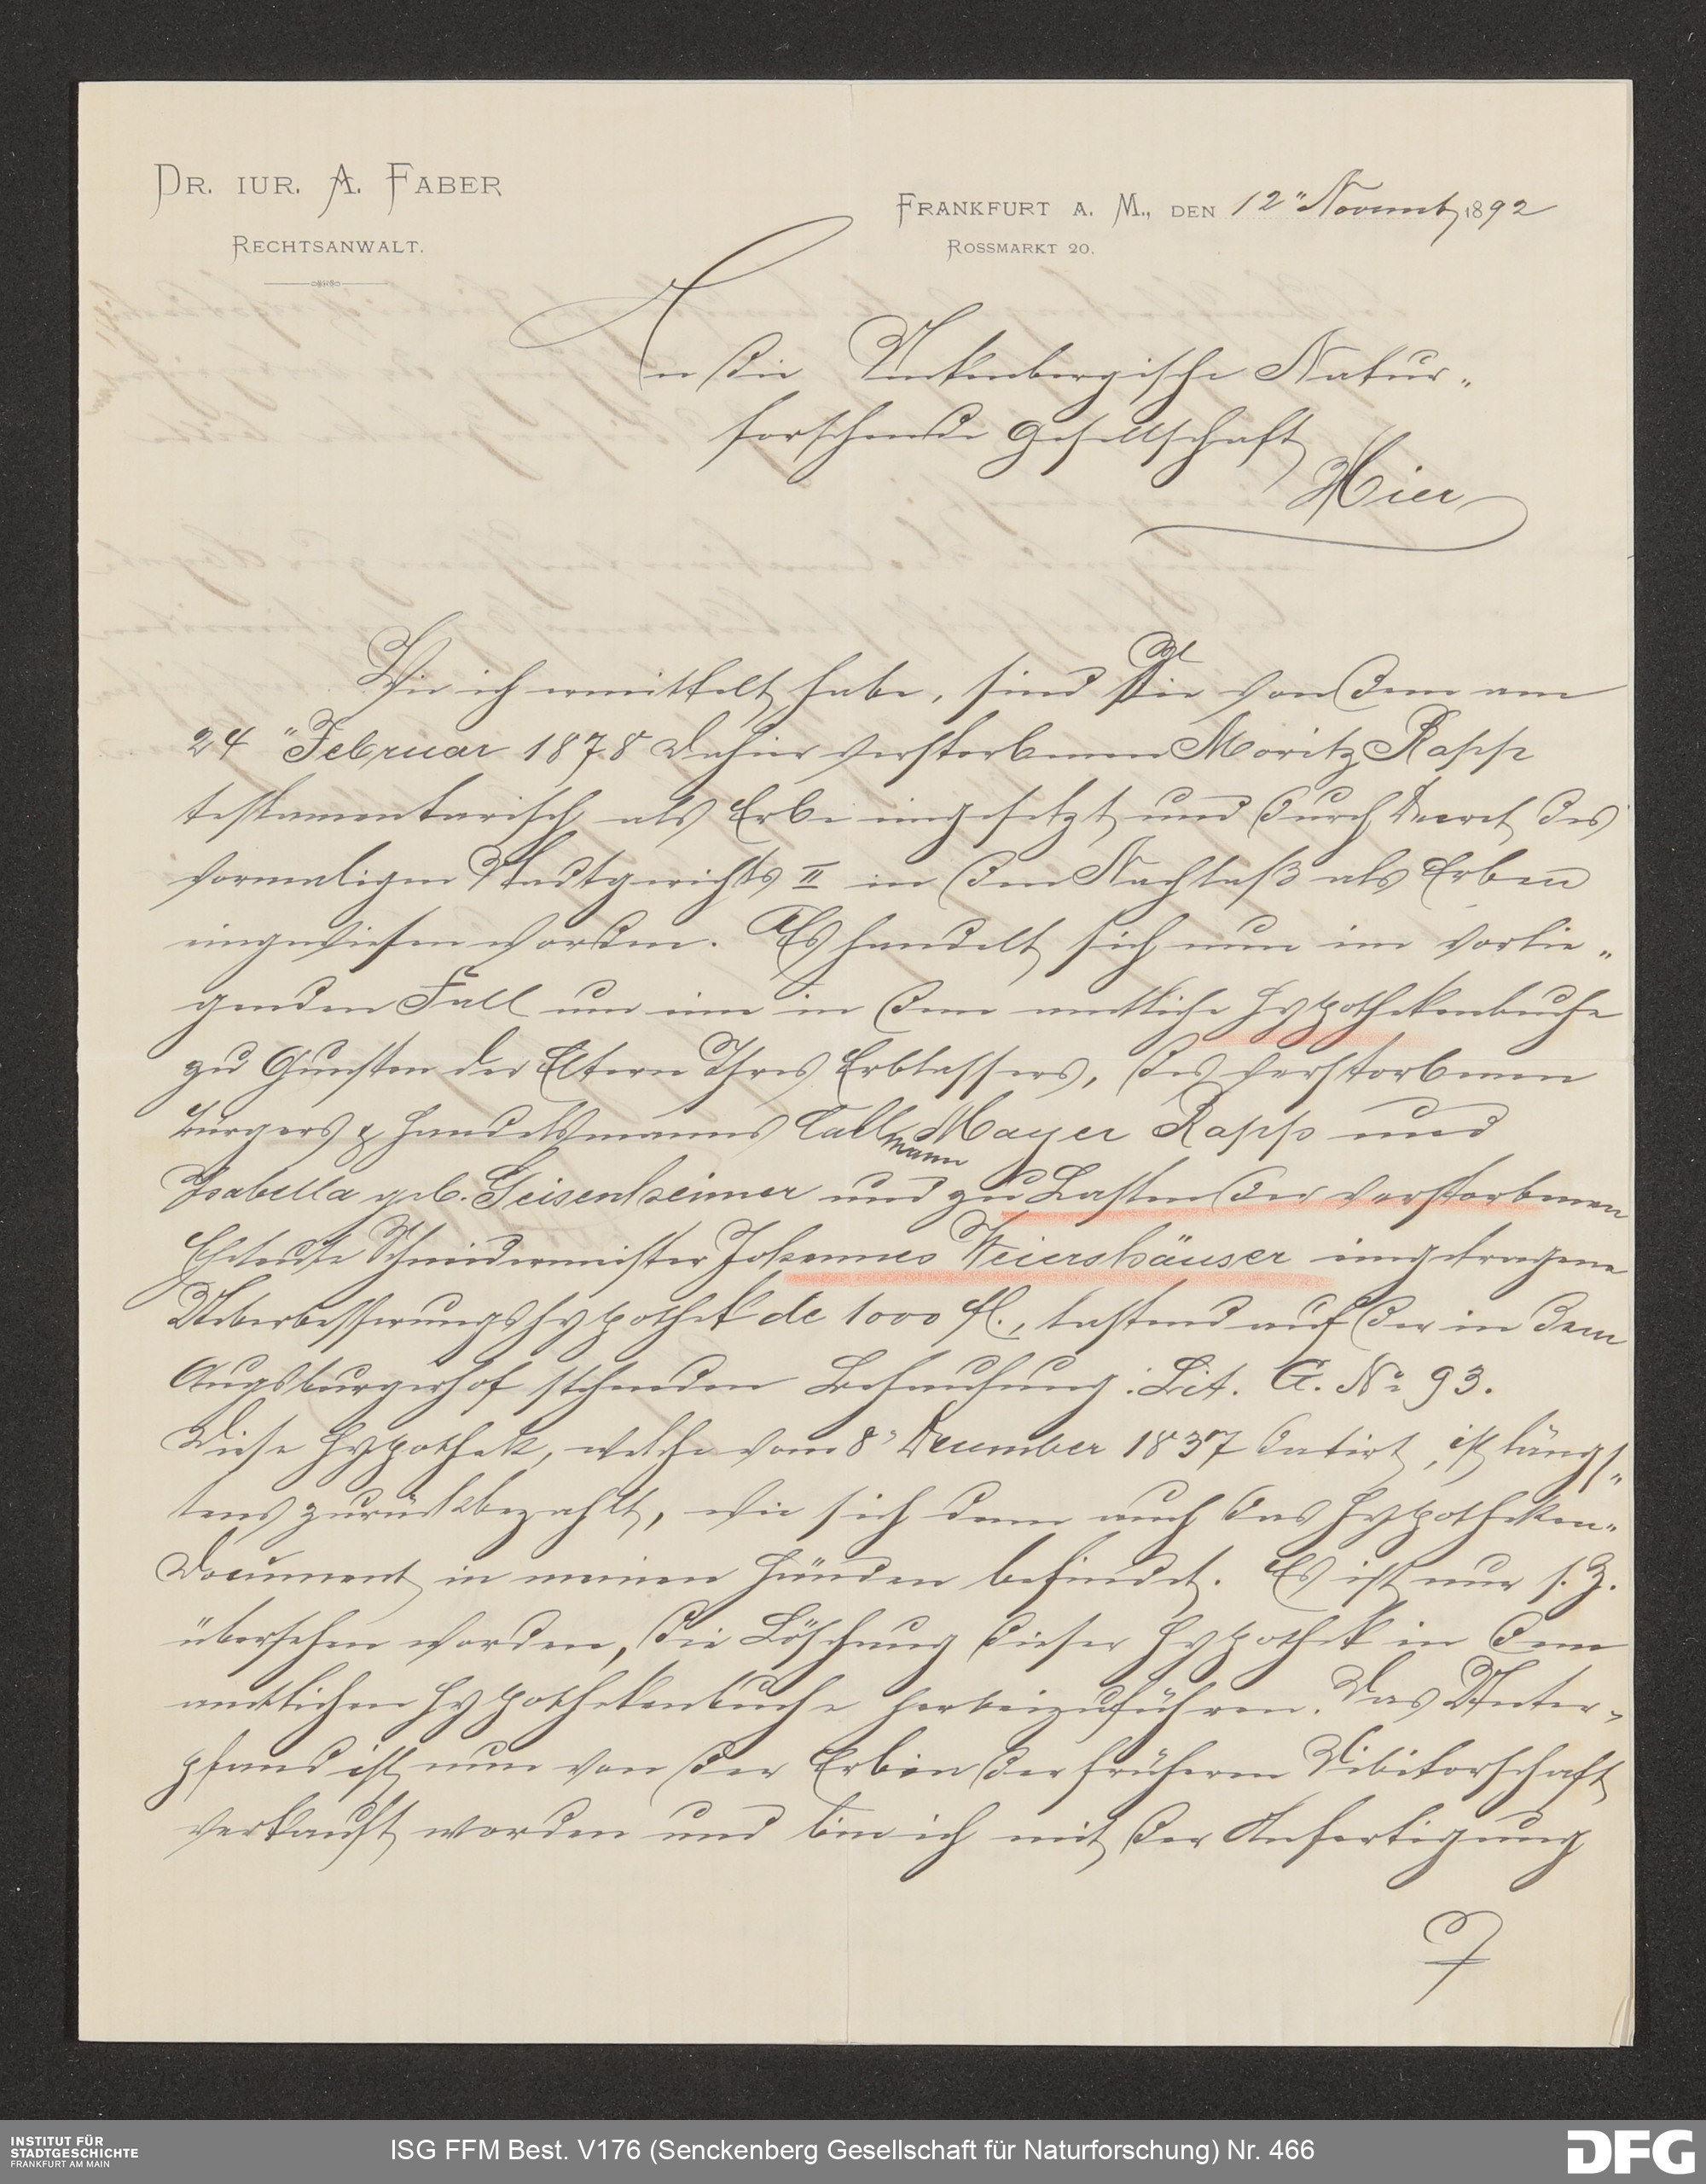 DR. IUR. A. FABER
RECHTSANWALT.
FRANKFURT A. M., DEN 12" Novemb 1892
ROSSMARKT 20.
An die Senkenbergische Natur„
forschende Gesellschaft
Hier
Wie ich ermittelt habe, sind Sie von dem am
24" Februar 1878 dahier verstorbenen Moritz Rapp
testamentarisch als Erbe eingesetzt und durch Decret des
vormaligen Stadtgerichts II in den Nachlaß als Erben
eingewiesen worden. Es handelt sich nun im vorlie„
genden Fall um eine in dem amtliche Hypothekenbuche
zu Gunsten der Eltern Ihres Erblassers, des verstorbenen
Bürgers & Handelsmanns Callmann Mayer Rapp und
Isabella geb. Geisenheimer und zu Lasten der verstorbenen
Eheleute Schneidermeister Johannes Weiershäuser eingetragene
Ueberbesserungshypothek de 1000 fl., lastend auf der in dem
Augsburgerhof stehenden Behausung: Lit. G. No 93.
Diese Hypothek, welche vom 8" December 1837 datirt, ist längs„
tens zurückbezahlt, wie sich denn auch das Hypotheken„
Document in meinen Händen befindet. Es ist nur s. Z.
übersehen worden, die Löschung dieser Hypothek in dem
amtlichen Hypothekenbuche herbeizuführen. Das Unter„
pfand ist nun von den Erben der früheren Debitorschaft
verkauft worden und bin ich mit der Anfertigung
INSTITUT FÜR
STADTGESCHICHTE
FRANKFURT AM MAIN
ISG FFM Best. V176 (Senckenberg Gesellschaft für Naturforschung) Nr. 466
DFG